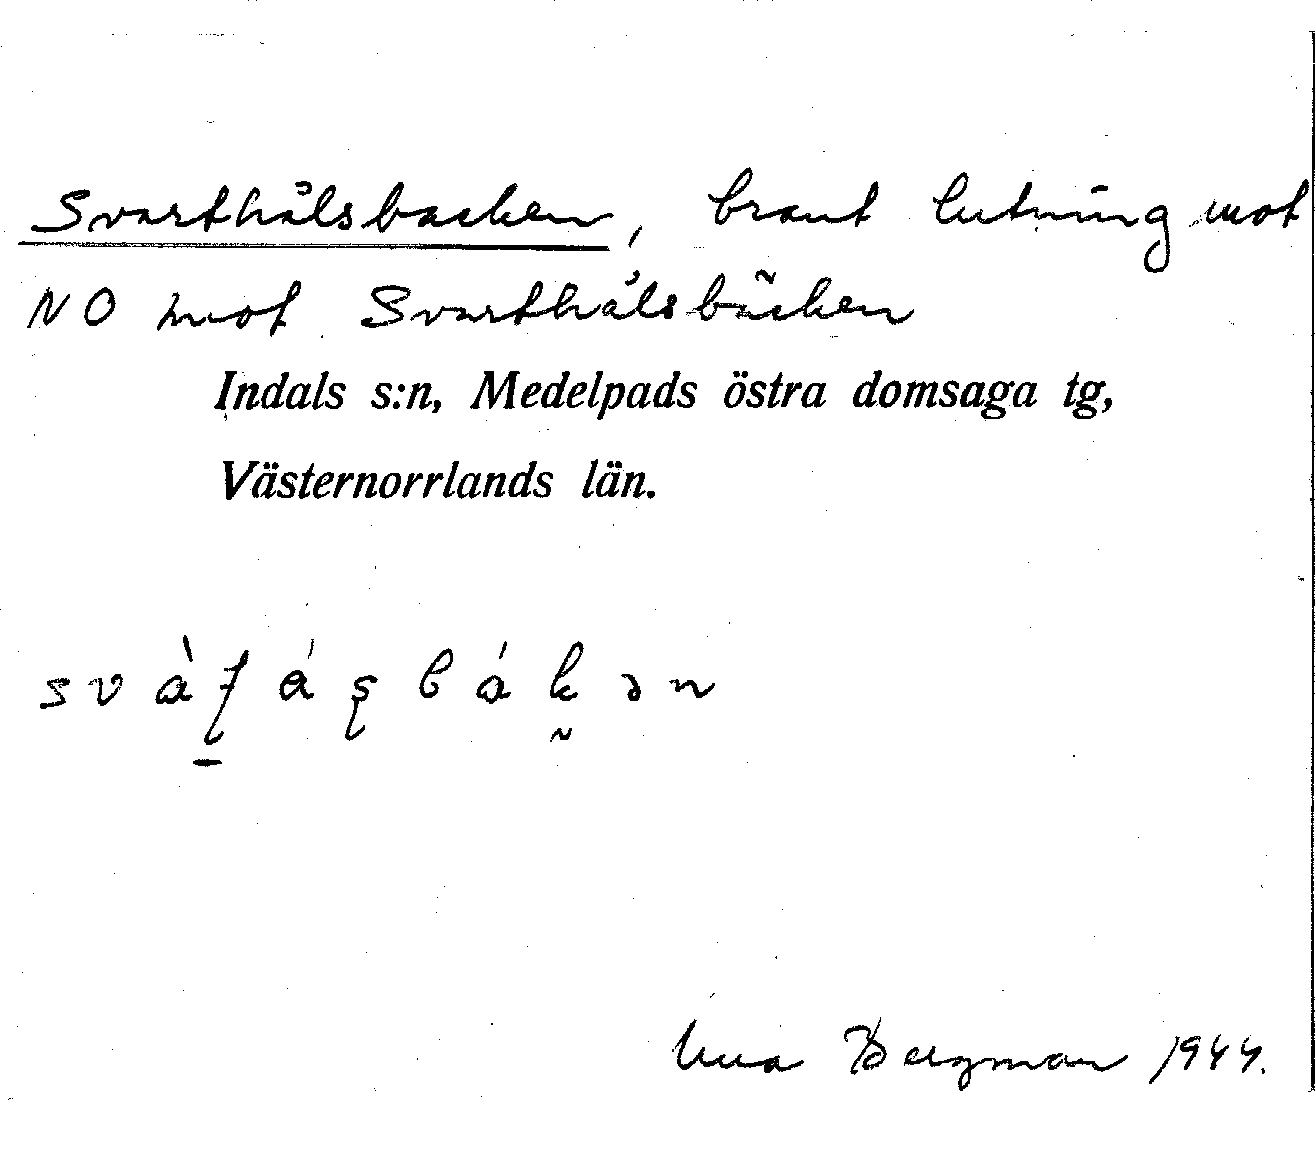 Svarthålsbacken, brant lutning mot
NO mot Svarthålsbäcken
Indals s:n, Medelpads östra domsaga tg,
Västernorrlands län.
Bergman 1944.